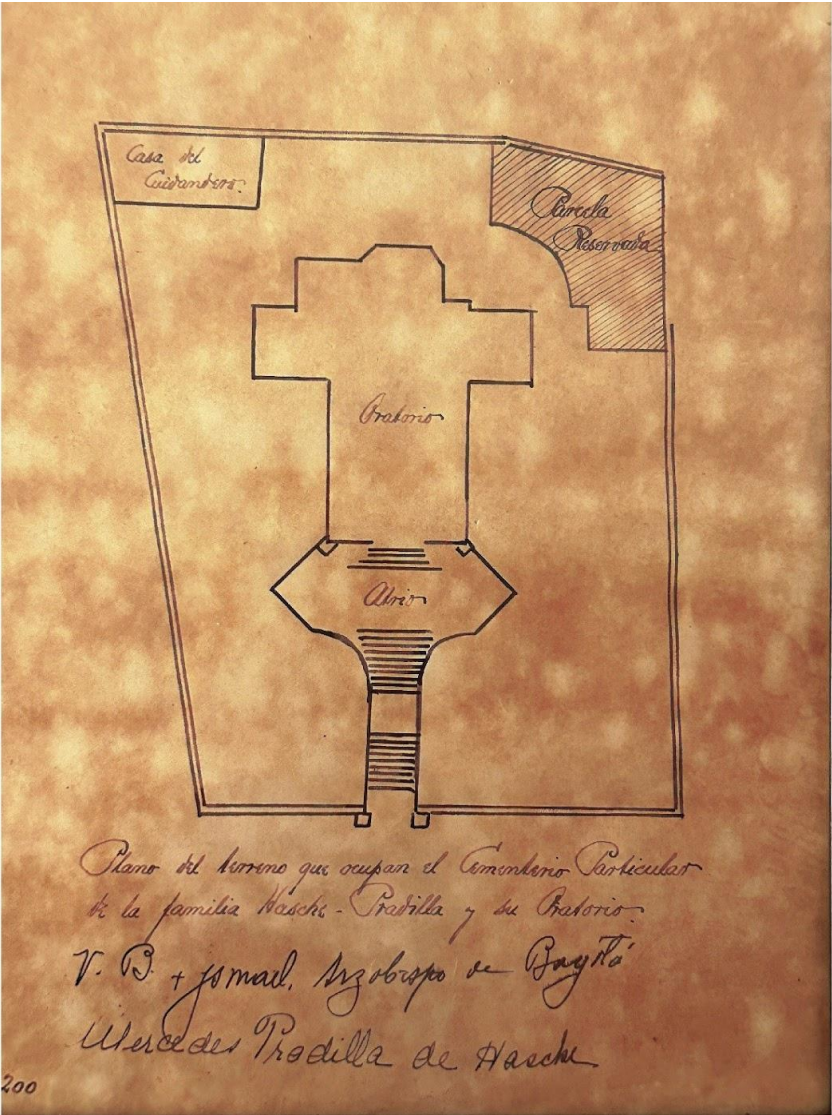 Casa del
Cuidandero.
Parcela
Reservada
Oratorio
Atrio
Plano del terreno que ocupan el Cementerio Particular
de la familia Hasche-Pradilla y su Oratorio.
V. B. + Ismael, Arzobispo de Bogotá
Mercedes Pradilla de Hasche
200